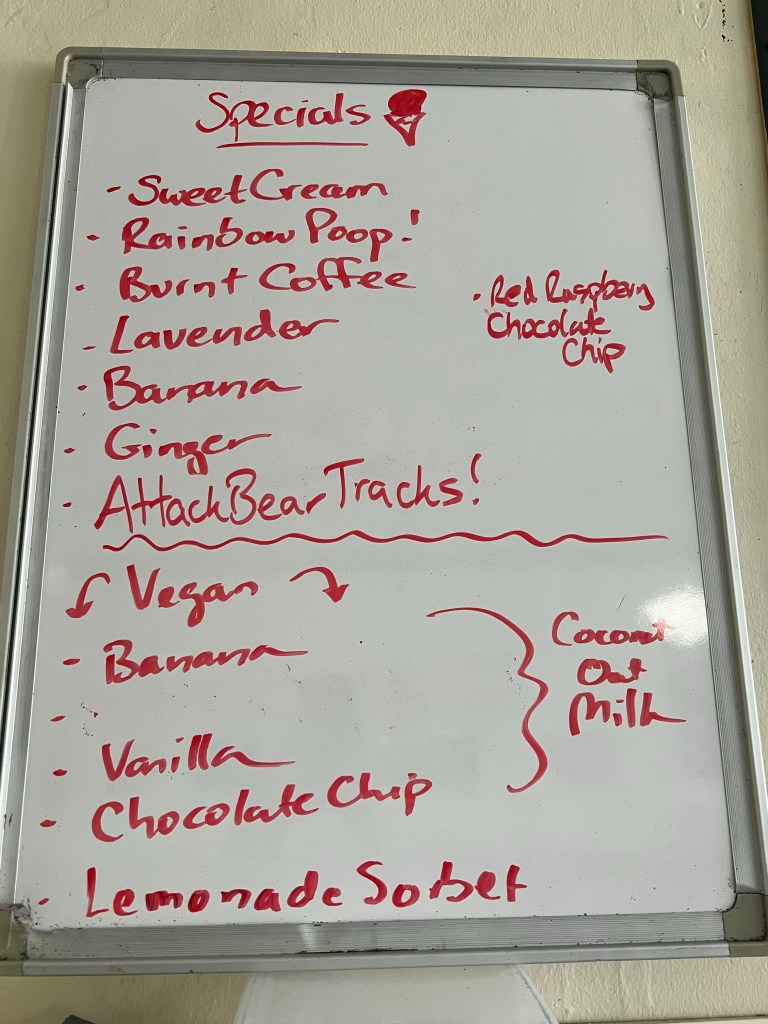 Specials
- Sweet Cream
- Rainbow Poop!
- Burnt Coffee
- Lavender
- Banana
- Ginger
- Attack Bear Tracks!
- Red Raspberry
Chocolate
Chip
Vegan
- Banana
-
- Vanilla
- Chocolate Chip
Coconut
Oat
Milk
- Lemonade Sorbet